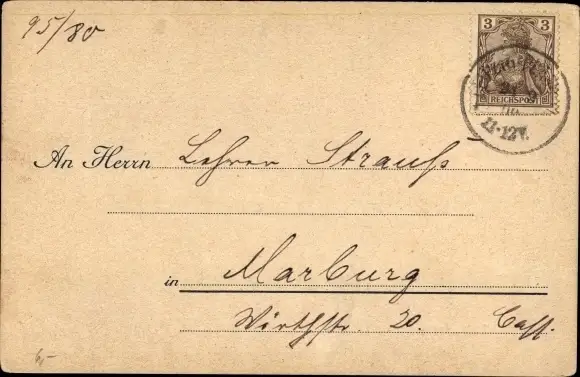 95/80
3 3
REICHSPOST
11-12V.
An Herrn Lehrer Strauß
in Marburg
Wörthstr. 20. Cass.
6,-